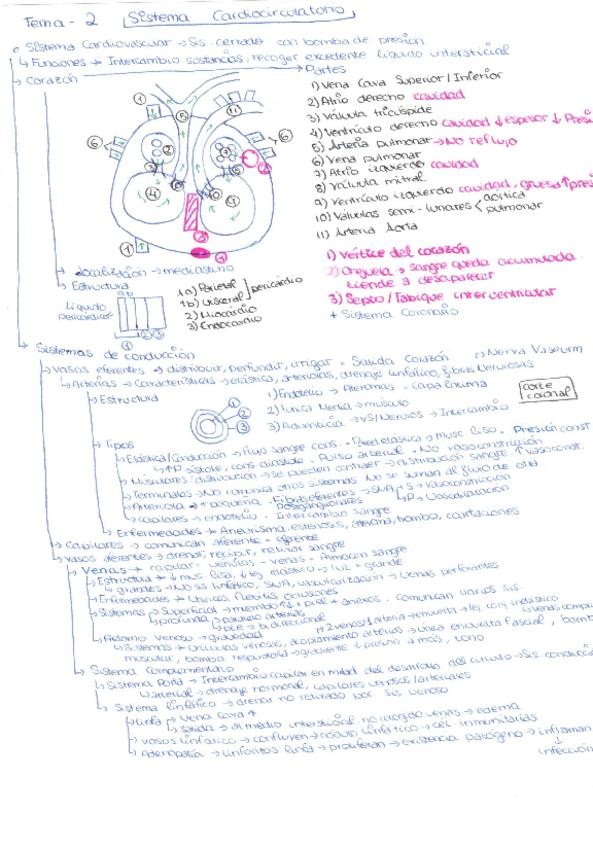 Tema - 2 Sistema Cardiocirculatorio
Sistema Cardiovascular → Sis. cerrado con bomba de presión
Funciones → Intercambio sustancias, recoger excedente líquido intersticial
Corazón → Partes
1) Vena Cava Superior / Inferior
2) Atrio derecho cavidad
3) Válvula tricúspide
4) Ventrículo derecho cavidad ↓ espesor ↓ Presi
5) Arteria pulmonar → No reflujo
6) Vena pulmonar
7) Atrio izquierdo cavidad
8) Válvula mitral
9) Ventrículo izquierdo cavidad, gruesa ↑ pres
10) Valvulas semi-lunares aórtica pulmonar
11) Arteria Aorta
1) Vértice del corazón
2) Orejuela → sangre queda acumulada
tiende a desaparecer
3) Septo / Tabique interventricular
+ Sistema Coronario
Localización → mediastino
Estructura
Líquido pericárdico
1a) Parietal
1b) Visceral
pericárdio
2) Miocárdio
3) Endocardio
Sistemas de conducción
Vasos eferentes → distribuir, perfundir, irrigar • Salida Corazón
Arterias → Características → elástica, arteriolas, drenaje linfático, fibras Nerviosas
Estructura
1) Endotelio → Ateromas - capa íntima
2) Tunica Media → músculo
3) Adventicia → VS/Nervios → Intercambio
corte coronal
Tipos
Elástica/Conducción → Flujo sangre cons. • Pared elástica → Musc liso. • Presión const
↑P sístole, cons diástole • Pulso arterial • No vasoconstricción
Musculares / distribución → se pueden contraer → distribución sangre ↑ vasoconst.
Terminales → No comunica otros sistemas No se suman al flujo de otra
Arteriola → + pequeña. Fibras eferentes posganglionares → SNA → S → Vasoconstricción
P → Vasodilatación
Capilares → endotelio • Intercambio sangre
Enfermedades → Aneurisma, estenosis, ateroma,
Capilares → comunican aferente - eferente
Vasos aferentes → drenar, recoger, retirar sangre
Venas → capilar - vénulas - venas • Almacen sangre
Estructura → ↓ mus. lisa, ↓ tej elástico → luz + grande
grandes → No sis linfático, SNA, vascularización → Venas perforantes
Enfermedades → Varices, flebitis, oclusiones
Sistemas Superficial → miembro → piel + anexos. Comunican varios sis
profunda → paralelo arterias
pie → bidireccional
2 venas/1 arteria → envuelta → tej conj indlástico
Retorno Venoso → gravedad
Sistemas → válvulas venosas, acoplamiento arterias → única envuelta fascial,
muscular, bomba respiratoria → gradiente
Sistema Complementario
Sistema Porta → Intercambio capilar en mitad del desarrollo del circuito → Sis.
arterial → drenaje hormonal, capilares venosos/arteriales
Sistema linfático → drenar no retirado por sis venoso
linfa → Vena Cava
Salida → al medio intersticial no recogido venas → edema
vasos linfático → confluyen → nódulo linfático → cél inmunitarias
Adenopatía → linfocitos linfa → proliferan → existencia patógeno → inflaman
infección